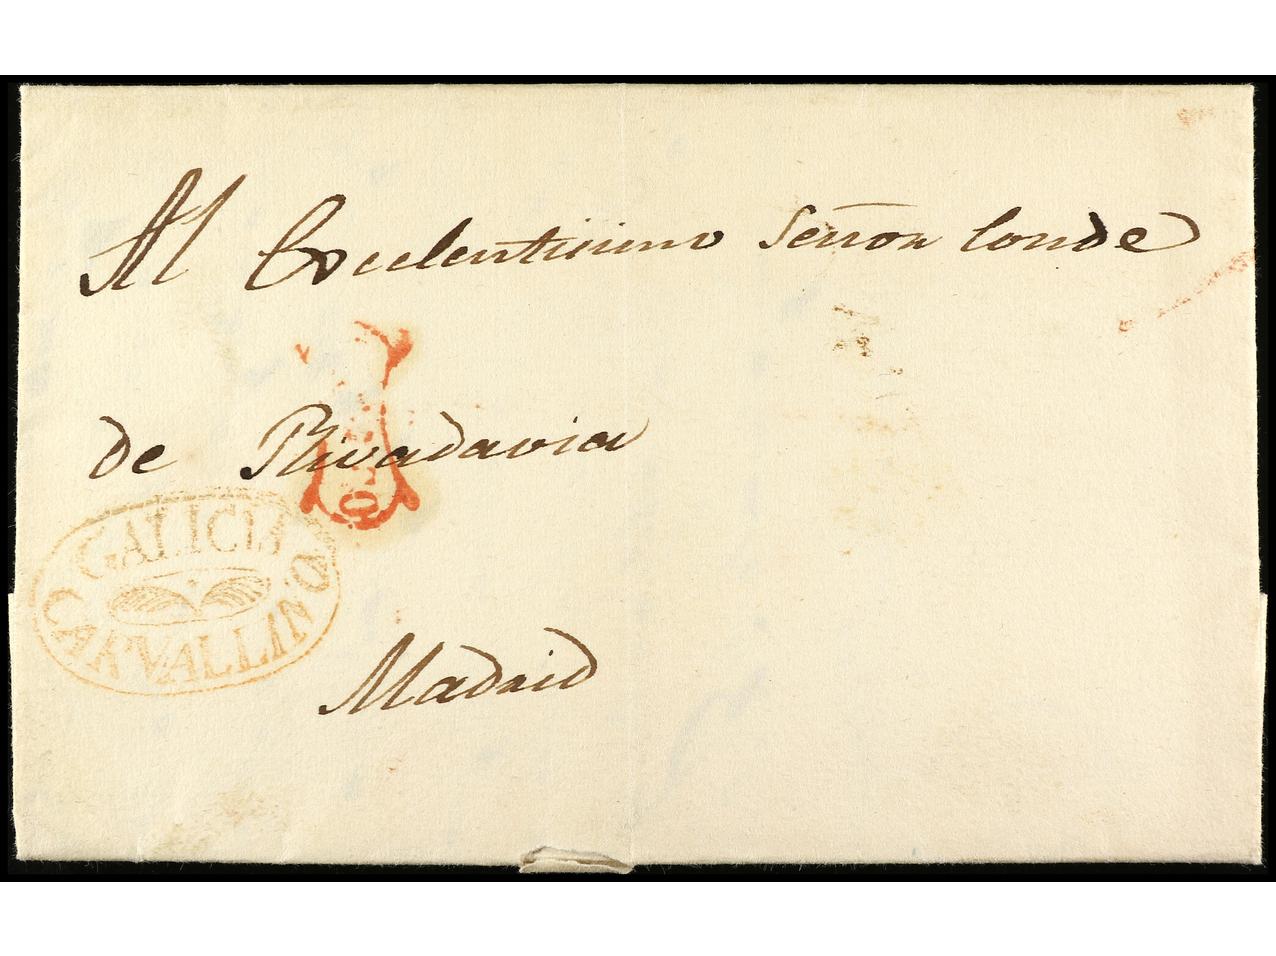 Al Excelentisimo Señor Conde
de Rivadavia
GALICIA
CARVALLINO
Madrid